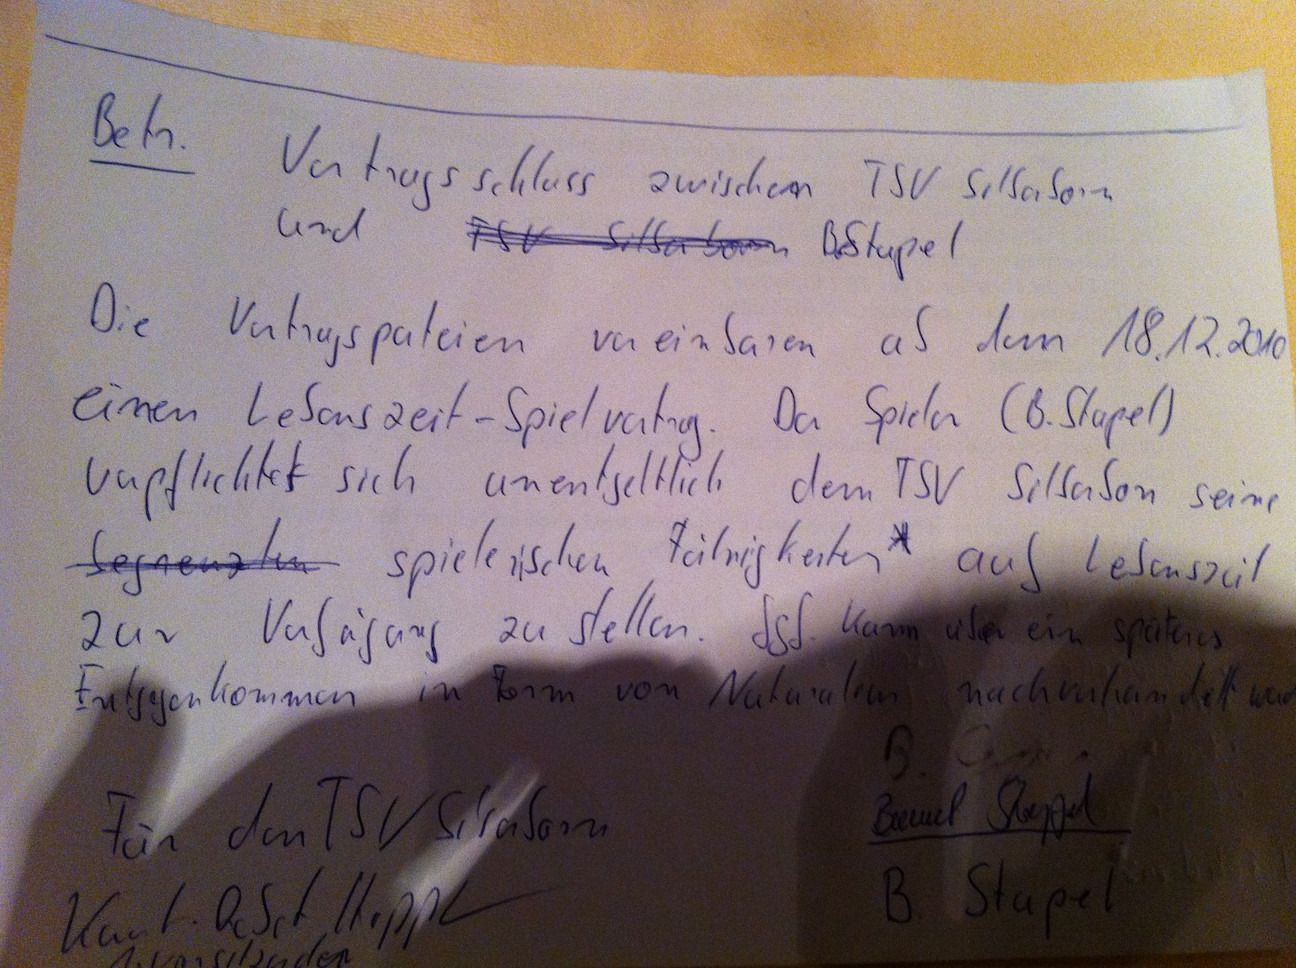 Betr. Vertragsschluss zwischen TSV Silberborn
und TSV Silberborn B. Stapel
Die Vertragspateien vereinbaren ab dem 18.12.2010
einen Lebenszeit-Spielvertrag. Der Spieler (B. Stapel)
verpflichtet sich unentgeltlich dem TSV Silberborn seine
begrenzten spielerischen Fähigkeiten* auf Lebenszeit
zur Verfügung zu stellen. Ggf. kann über ein späteres
Entgegenkommen in Form von Naturalien nachverhandelt
B.
Für den TSV Silberborn
B. Stapel
1. Vorsitzender